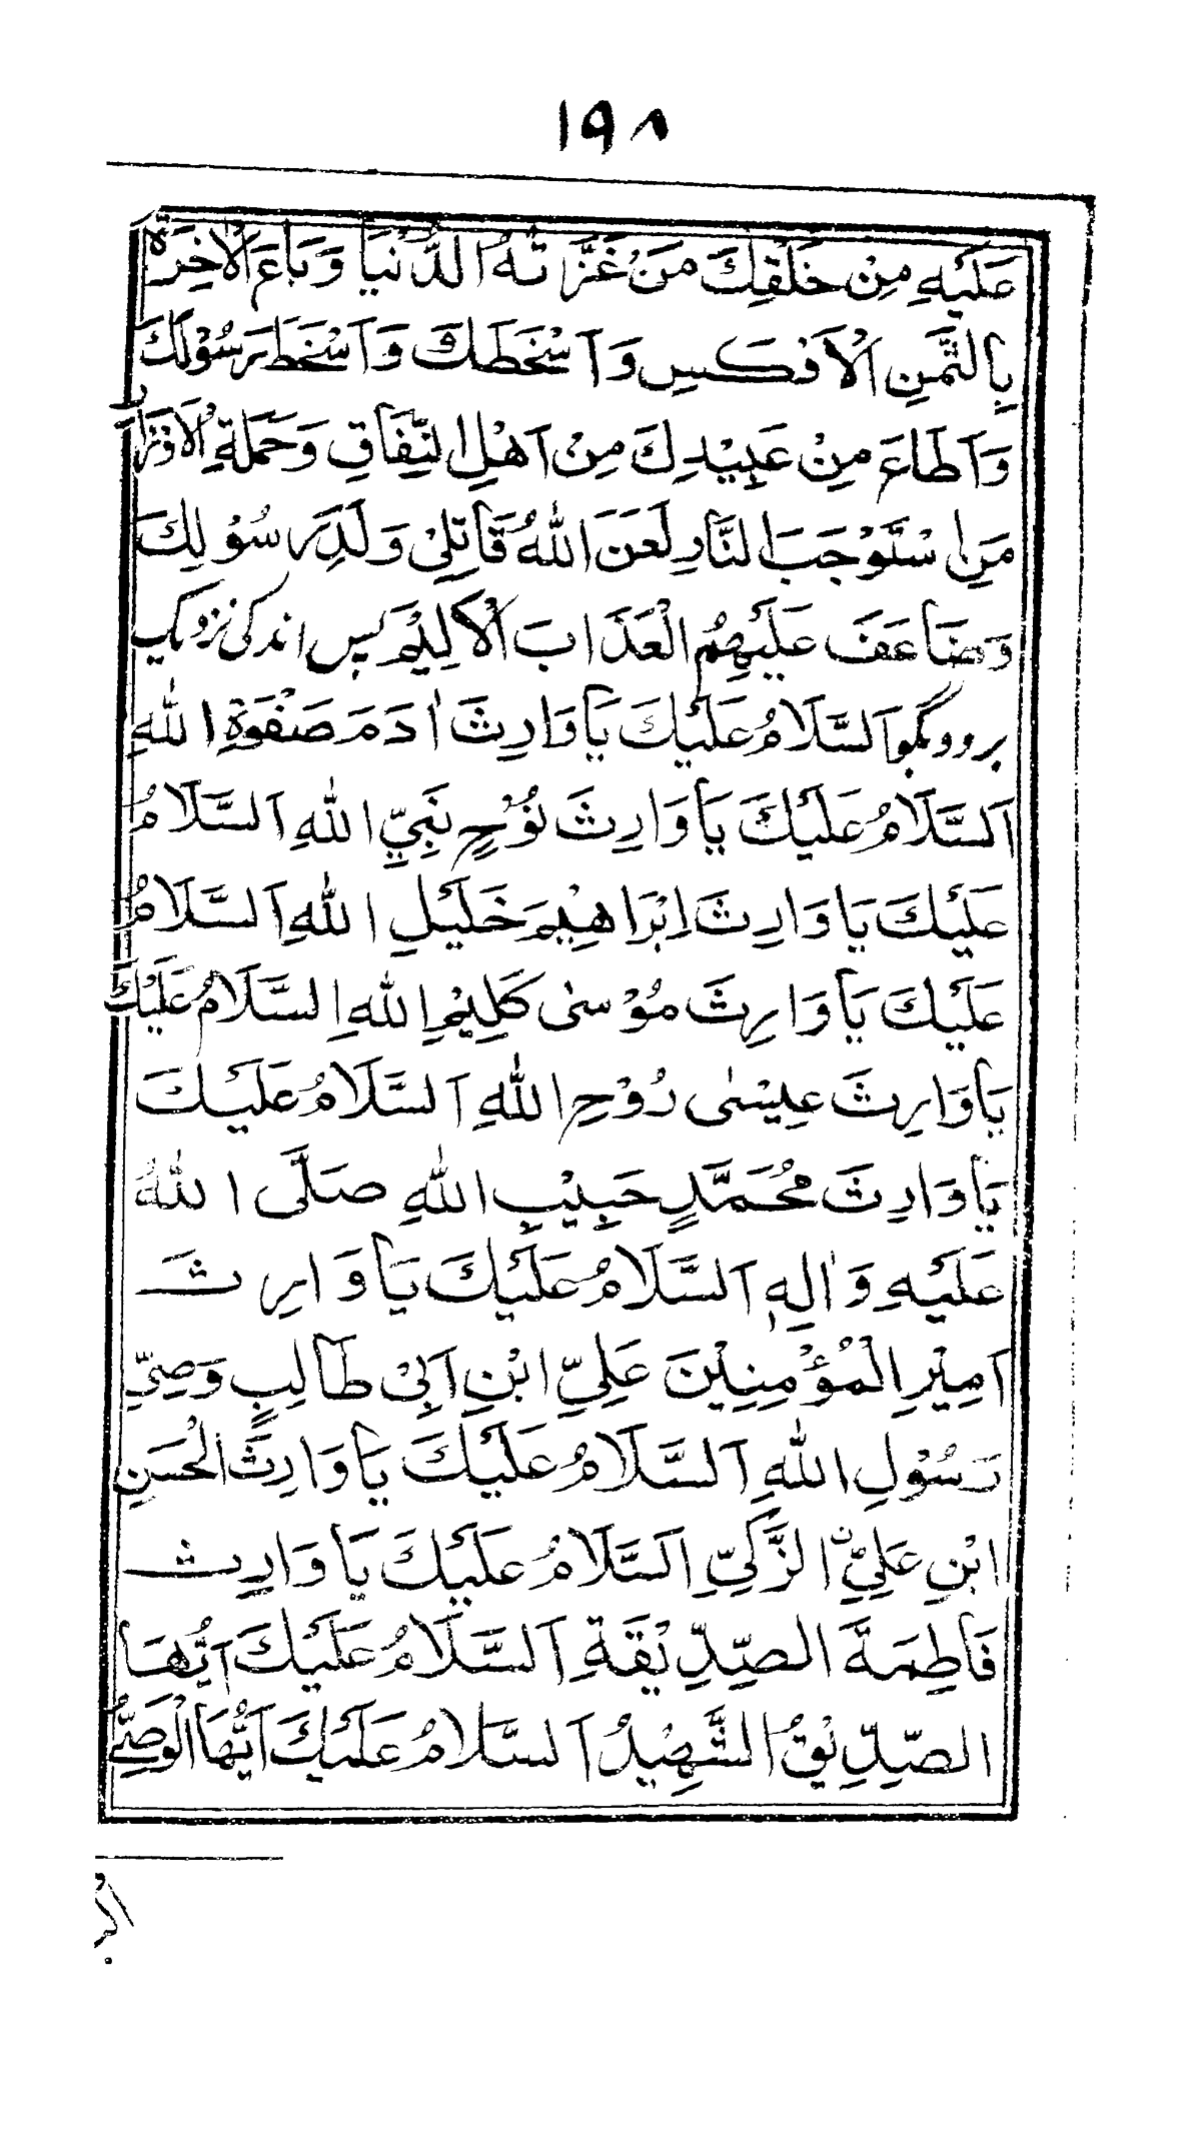 ١٩٨
عَلَيْهِ مِنْ خَلْقِكَ مَنْ غَرَّتْهُ الدُّنْيَا وَبَاعَ الْاٰخِرَةَ
بِالثَّمَنِ الْاَوْكَسِ وَاَسْخَطَكَ وَاَسْخَطَ رَسُوْلَكَ
وَاَطَاعَ مِنْ عَبِيْدِكَ مِنْ اَهْلِ النِّفَاقِ وَحَمَلَةِ الْاَوْزَارِ
مَنِ اسْتَوْجَبَ النَّارِ لَعَنَ اللهُ قَاتِلِيْ وَلَدِ رَسُوْلِكَ
وَضَاعَفَ عَلَيْهِمُ الْعَذَابَ الْاَلِيْمَ پس اندکی نزدیک
برو و بگو اَلسَّلَامُ عَلَيْكَ يَا وَارِثَ اٰدَمَ صَفْوَةِ اللهِ
اَلسَّلَامُ عَلَيْكَ يَا وَارِثَ نُوْحٍ نَبِيِّ اللهِ اَلسَّلَامُ
عَلَيْكَ يَا وَارِثَ اِبْرَاهِيْمَ خَلِيْلِ اللهِ اَلسَّلَامُ
عَلَيْكَ يَا وَارِثَ مُوْسٰى كَلِيْمِ اللهِ السَّلَامُ عَلَيْكَ
يَا وَارِثَ عِيْسٰى رُوْحِ اللهِ اَلسَّلَامُ عَلَيْكَ
يَا وَارِثَ مُحَمَّدٍ حَبِيْبِ اللهِ صَلَّى اللهُ
عَلَيْهِ وَاٰلِهٖ اَلسَّلَامُ عَلَيْكَ يَا وَارِثَ
اَمِيْرِ الْمُؤْمِنِيْنَ عَلِيِّ ابْنِ اَبِيْ طَالِبٍ وَصِيِّ
رَسُوْلِ اللهِ اَلسَّلَامُ عَلَيْكَ يَا وَارِثَ الْحَسَنِ
ابْنِ عَلِيِّ ن الزَّكِيِّ اَلسَّلَامُ عَلَيْكَ يَا وَارِثَ
فَاطِمَةَ الصِّدِّيْقَةِ اَلسَّلَامُ عَلَيْكَ اَيُّهَا
الصِّدِّيْقُ الشَّهِيْدُ اَلسَّلَامُ عَلَيْكَ اَيُّهَا الْوَصِيُّ